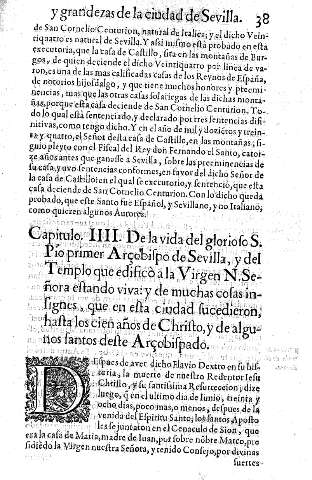 y grandezas de la ciudad de Sevilla. 38
de San Cornelio Centurion, natural de Italica; y el dicho Vein-
tiquatro es natural de Sevilla. Y assi mismo está probado en esta
executoria, que la casa de Castillo, sita en las montañas de Bur-
gos, de quien deciende el dicho Veintiquatro por linea de va-
ron, es una de las mas calificadas casas de los Reynos de España,
de notorios hijosdalgo, y que tiene muchos honores y preemi-
nencias, mas que las otras casas solariegas de las dichas monta-
ñas, porque esta casa deciende de San Cornelio Centurion. To-
do lo qual está sentenciado, y declarado por tres sentencias difi-
nitivas, como tengo dicho. Y en el año de mil y dozientos y trein-
ta y quatro, el Señor desta casa de Castillo, en las montañas, si-
guio pleyto con el Fiscal del Rey don Fernando el Santo, cator-
ze años antes que ganasse a Sevilla, sobre las preeminencias de
su casa, y uvo sentencias conformes, en favor del dicho Señor de
la casa de Castillo: en el qual se executorió, y sentenció, que esta
casa deciende de San Cornelio Centurion. Con lo dicho queda
probado, que este Santo fue Español, y Sevillano, y no Italiano,
como quieren algunos Autores.
Capitulo. IIII. De la vida del glorioso S.
Pio primer Arçobispo de Sevilla, y del
Templo que edificò a la Virgen N. Se-
ñora estando viva: y de muchas cosas in-
signes, que en esta ciudad sucedieron,
hasta los cien años de Christo, y de algu-
nos santos deste Arçobispado.
DEspues de aver dicho Flavio Dextro en su his-
toria, la muerte de nuestro Redentor Iesu
Christo, y su santissima Resurreccion; dize
luego, q̃ en el ultimo dia de Iunio, treinta y
ocho dias, poco mas, o menos, despues de la
venida del Espiritu Santo; los santos Aposto
les se juntaron en el Cenaculo de Sion, que
era la casa de Maria, madre de Iuan, por sobre nõbre Marco, pre
sidiẽdo la Virgen nuestra Señora, y tenido Consejo, por divinas
suertes